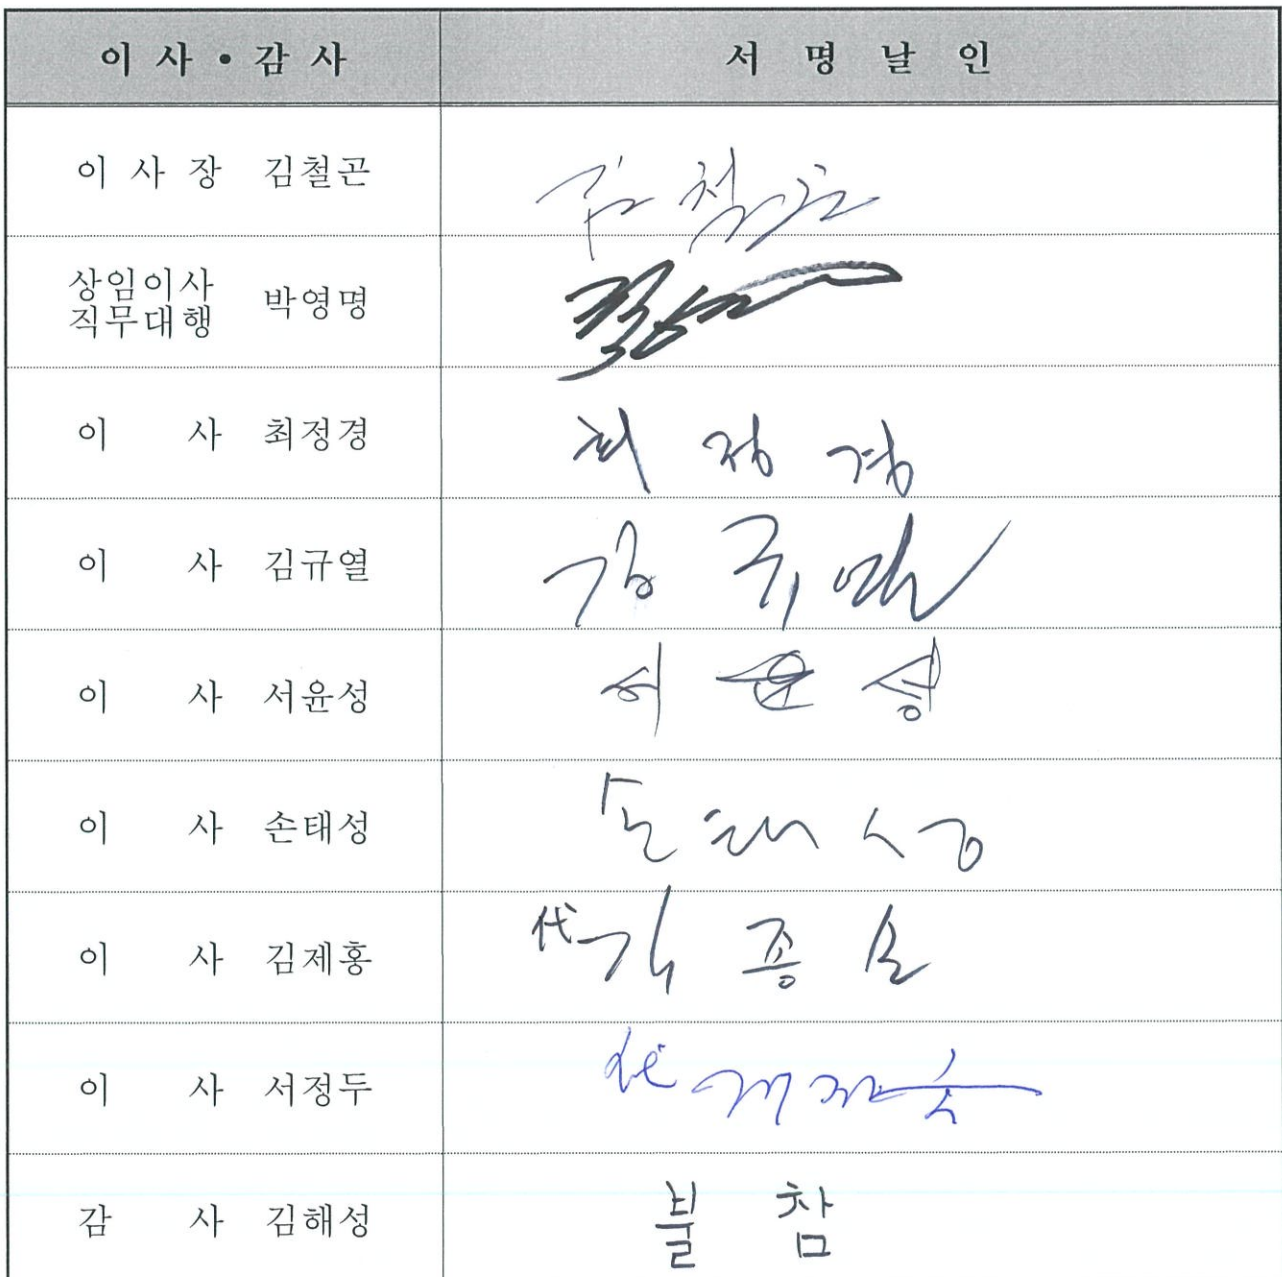 이 사 • 감 사 서 명 날 인
이 사 장 김철곤 김철곤
상임이사
직무대행 박영명
이 사 최정경 최정경
이 사 김규열 김규열
이 사 서윤성 서윤성
이 사 손태성 손태성
이 사 김제홍 代 김종
이 사 서정두 代
감 사 김해성 불 참